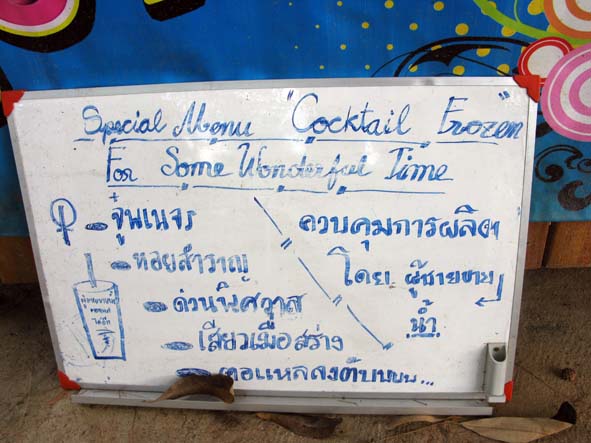 Special Menu "Cocktail Frozen"
For Some Wonderful Time
จู๋นเนจร
หอยสำราญ
ด่วนพิศวาส
เสียวเมื่อสร่าง
ควบคุมการผลิตฯ
โดย ผู้ชายขาย
น้ำ